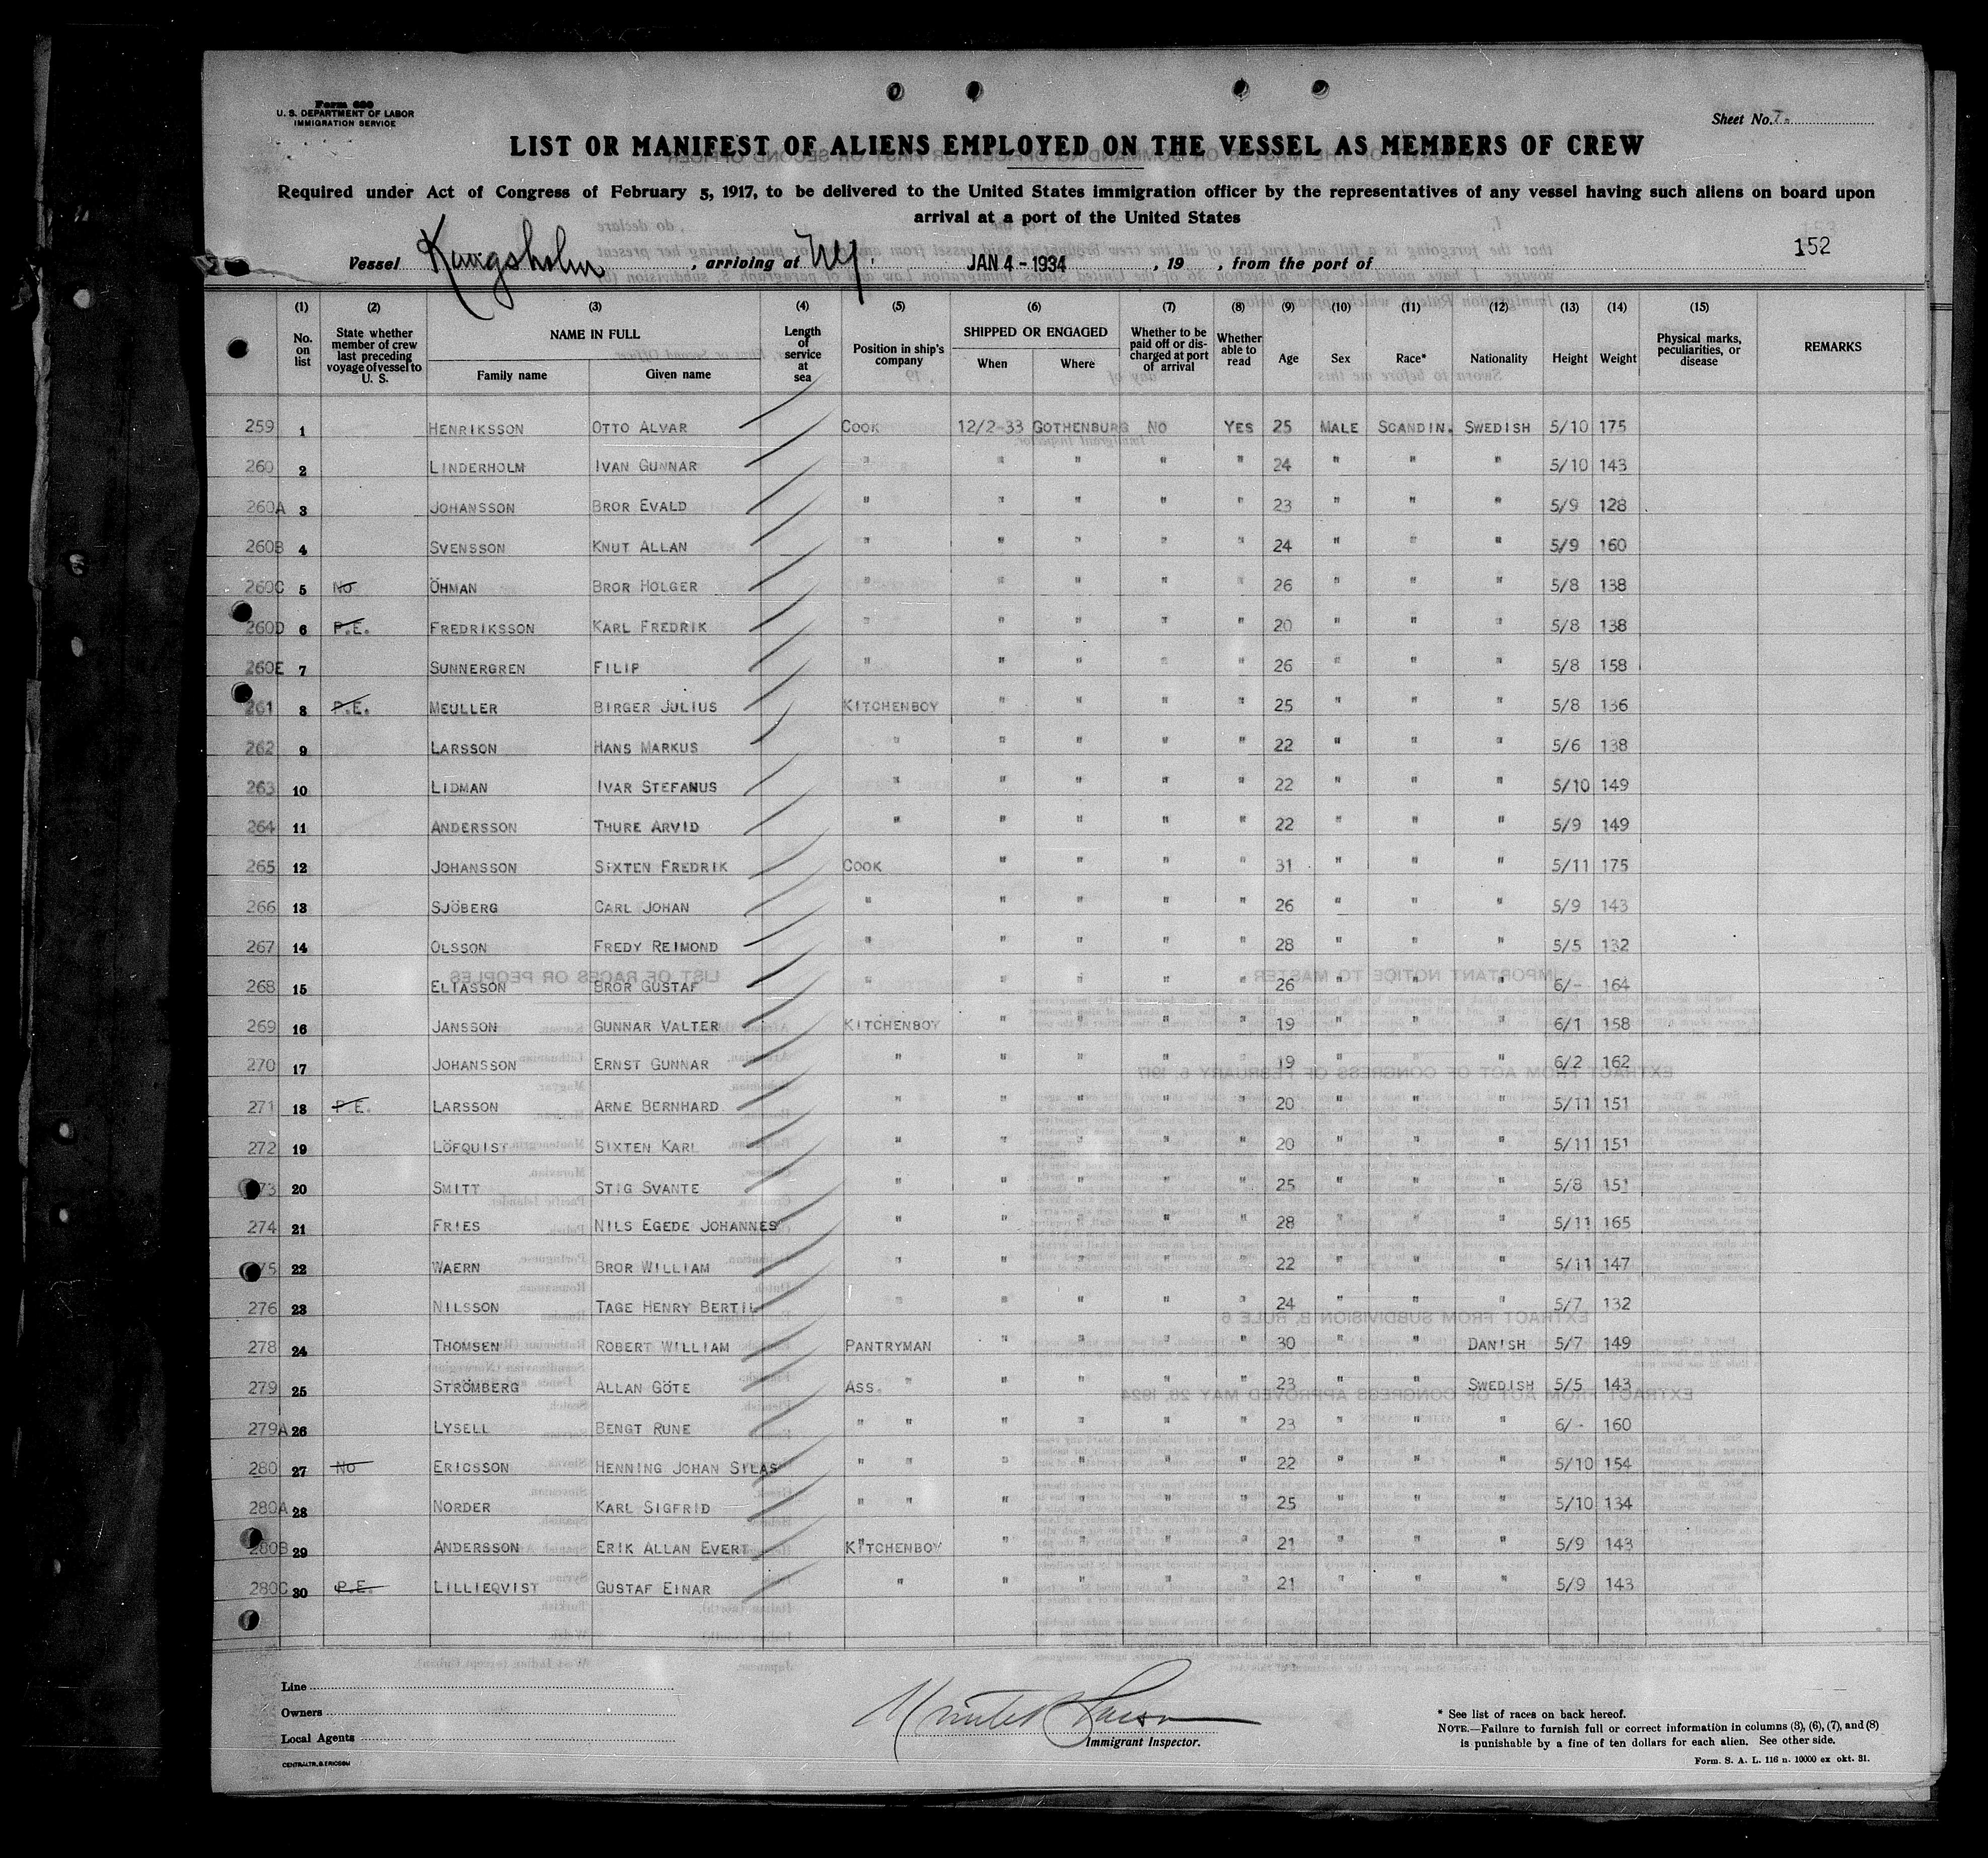 Form 680
U. S. DEPARTMENT OF LABOR
IMMIGRATION SERVICE
Sheet No. 7.
LIST OR MANIFEST OF ALIENS EMPLOYED ON THE VESSEL AS MEMBERS OF CREW
Required under Act of Congress of February 5, 1917, to be delivered to the United States immigration officer by the representatives of any vessel having such aliens on board upon
arrival at a port of the United States
152
Vessel Kungsholm, arriving at NY. JAN 4 - 1934, 19 , from the port of
(1) (2) (3) (4) (5) (6) (7) (8) (9) (10) (11) (12) (13) (14) (15)
No. on list State whether member of crew last preceding voyage of vessel to U. S. NAME IN FULL Family name Given name Length of service at sea Position in ship's company SHIPPED OR ENGAGED When Where Whether to be paid off or discharged at port of arrival Whether able to read Age Sex Race* Nationality Height Weight Physical marks, peculiarities, or disease REMARKS
259 1 HENRIKSSON OTTO ALVAR COOK 12/2-33 GOTHENBURG NO YES 25 MALE SCANDIN. SWEDISH 5/10 175
260 2 LINDERHOLM IVAN GUNNAR " " " " " 24 " " " 5/10 143
260A 3 JOHANSSON BROR EVALD " " " " " 23 " " " 5/9 128
260B 4 SVENSSON KNUT ALLAN " " " " " 24 " " " 5/9 160
260C 5 NO ÖHMAN BROR HOLGER " " " " " 26 " " " 5/8 138
260D 6 P.E. FREDRIKSSON KARL FREDRIK " " " " " 20 " " " 5/8 138
260E 7 SUNNERGREN FILIP " " " " " 26 " " " 5/8 158
261 8 P.E. MEULLER BIRGER JULIUS KITCHENBOY " " " " 25 " " " 5/8 136
262 9 LARSSON HANS MARKUS " " " " " 22 " " " 5/6 138
263 10 LIDMAN IVAR STEFANUS " " " " " 22 " " " 5/10 149
264 11 ANDERSSON THURE ARVID " " " " " 22 " " " 5/9 149
265 12 JOHANSSON SIXTEN FREDRIK COOK " " " " 31 " " " 5/11 175
266 13 SJÖBERG CARL JOHAN " " " " " 26 " " " 5/9 143
267 14 OLSSON FREDY REIMOND " " " " " 28 " " " 5/5 132
268 15 ELIASSON BROR GUSTAF " " " " " 26 " " " 6/- 164
269 16 JANSSON GUNNAR VALTER KITCHENBOY " " " " 19 " " " 6/1 158
270 17 JOHANSSON ERNST GUNNAR " " " " " 19 " " " 6/2 162
271 18 P.E. LARSSON ARNE BERNHARD " " " " " 20 " " " 5/11 151
272 19 LÖFQUIST SIXTEN KARL " " " " " 20 " " " 5/11 151
73 20 SMITT STIG SVANTE " " " " " 25 " " " 5/8 151
274 21 FRIES NILS EGEDE JOHANNES " " " " " 28 " " " 5/11 165
75 22 WAERN BROR WILLIAM " " " " " 22 " " " 5/11 147
276 23 NILSSON TAGE HENRY BERTIL " " " " " 24 " " " 5/7 132
278 24 THOMSEN ROBERT WILLIAM PANTRYMAN " " " " 30 " " DANISH 5/7 149
279 25 STRÖMBERG ALLAN GÖTE ASS. " " " " " 23 " " SWEDISH 5/5 143
279A 26 LYSELL BENGT RUNE " " " " " " 23 " " " 6/- 160
280 27 NO ERICSSON HENNING JOHAN SILAS " " " " " " 22 " " " 5/10 154
280A 28 NORDER KARL SIGFRID " " " " " " 25 " " " 5/10 134
280B 29 ANDERSSON ERIK ALLAN EVERT KITCHENBOY " " " " 21 " " " 5/9 143
280C 30 P.E. LILLIEQVIST GUSTAF EINAR " " " " " 21 " " " 5/9 143
Line
Owners
Local Agents
Immigrant Inspector.
CENTRALTR. B. ERICSSON
* See list of races on back hereof.
NOTE.—Failure to furnish full or correct information in columns (3), (6), (7), and (8)
is punishable by a fine of ten dollars for each alien. See other side.
Form. S. A. L. 116 n. 10000 ex okt. 31.